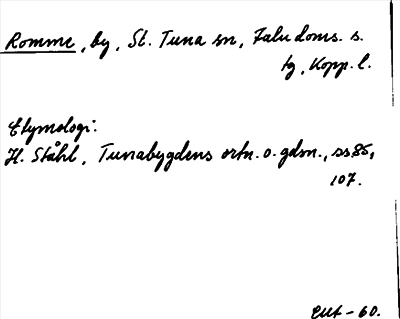 Romme, by, St. Tuna sn, Falu doms. s.
tg, Kopp. l.
Etymologi:
H. Ståhl, Tunabygdens ortn. o. gdsn., ss 85,
107.
EUt - 60.